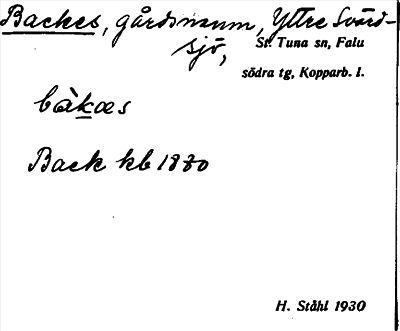 Backes, gårdsnamn, Yttre Svärd-
sjö,
St. Tuna sn, Falu
södra tg, Kopparb. l.
bàkæs
Back kb 1830
H. Ståhl 1930